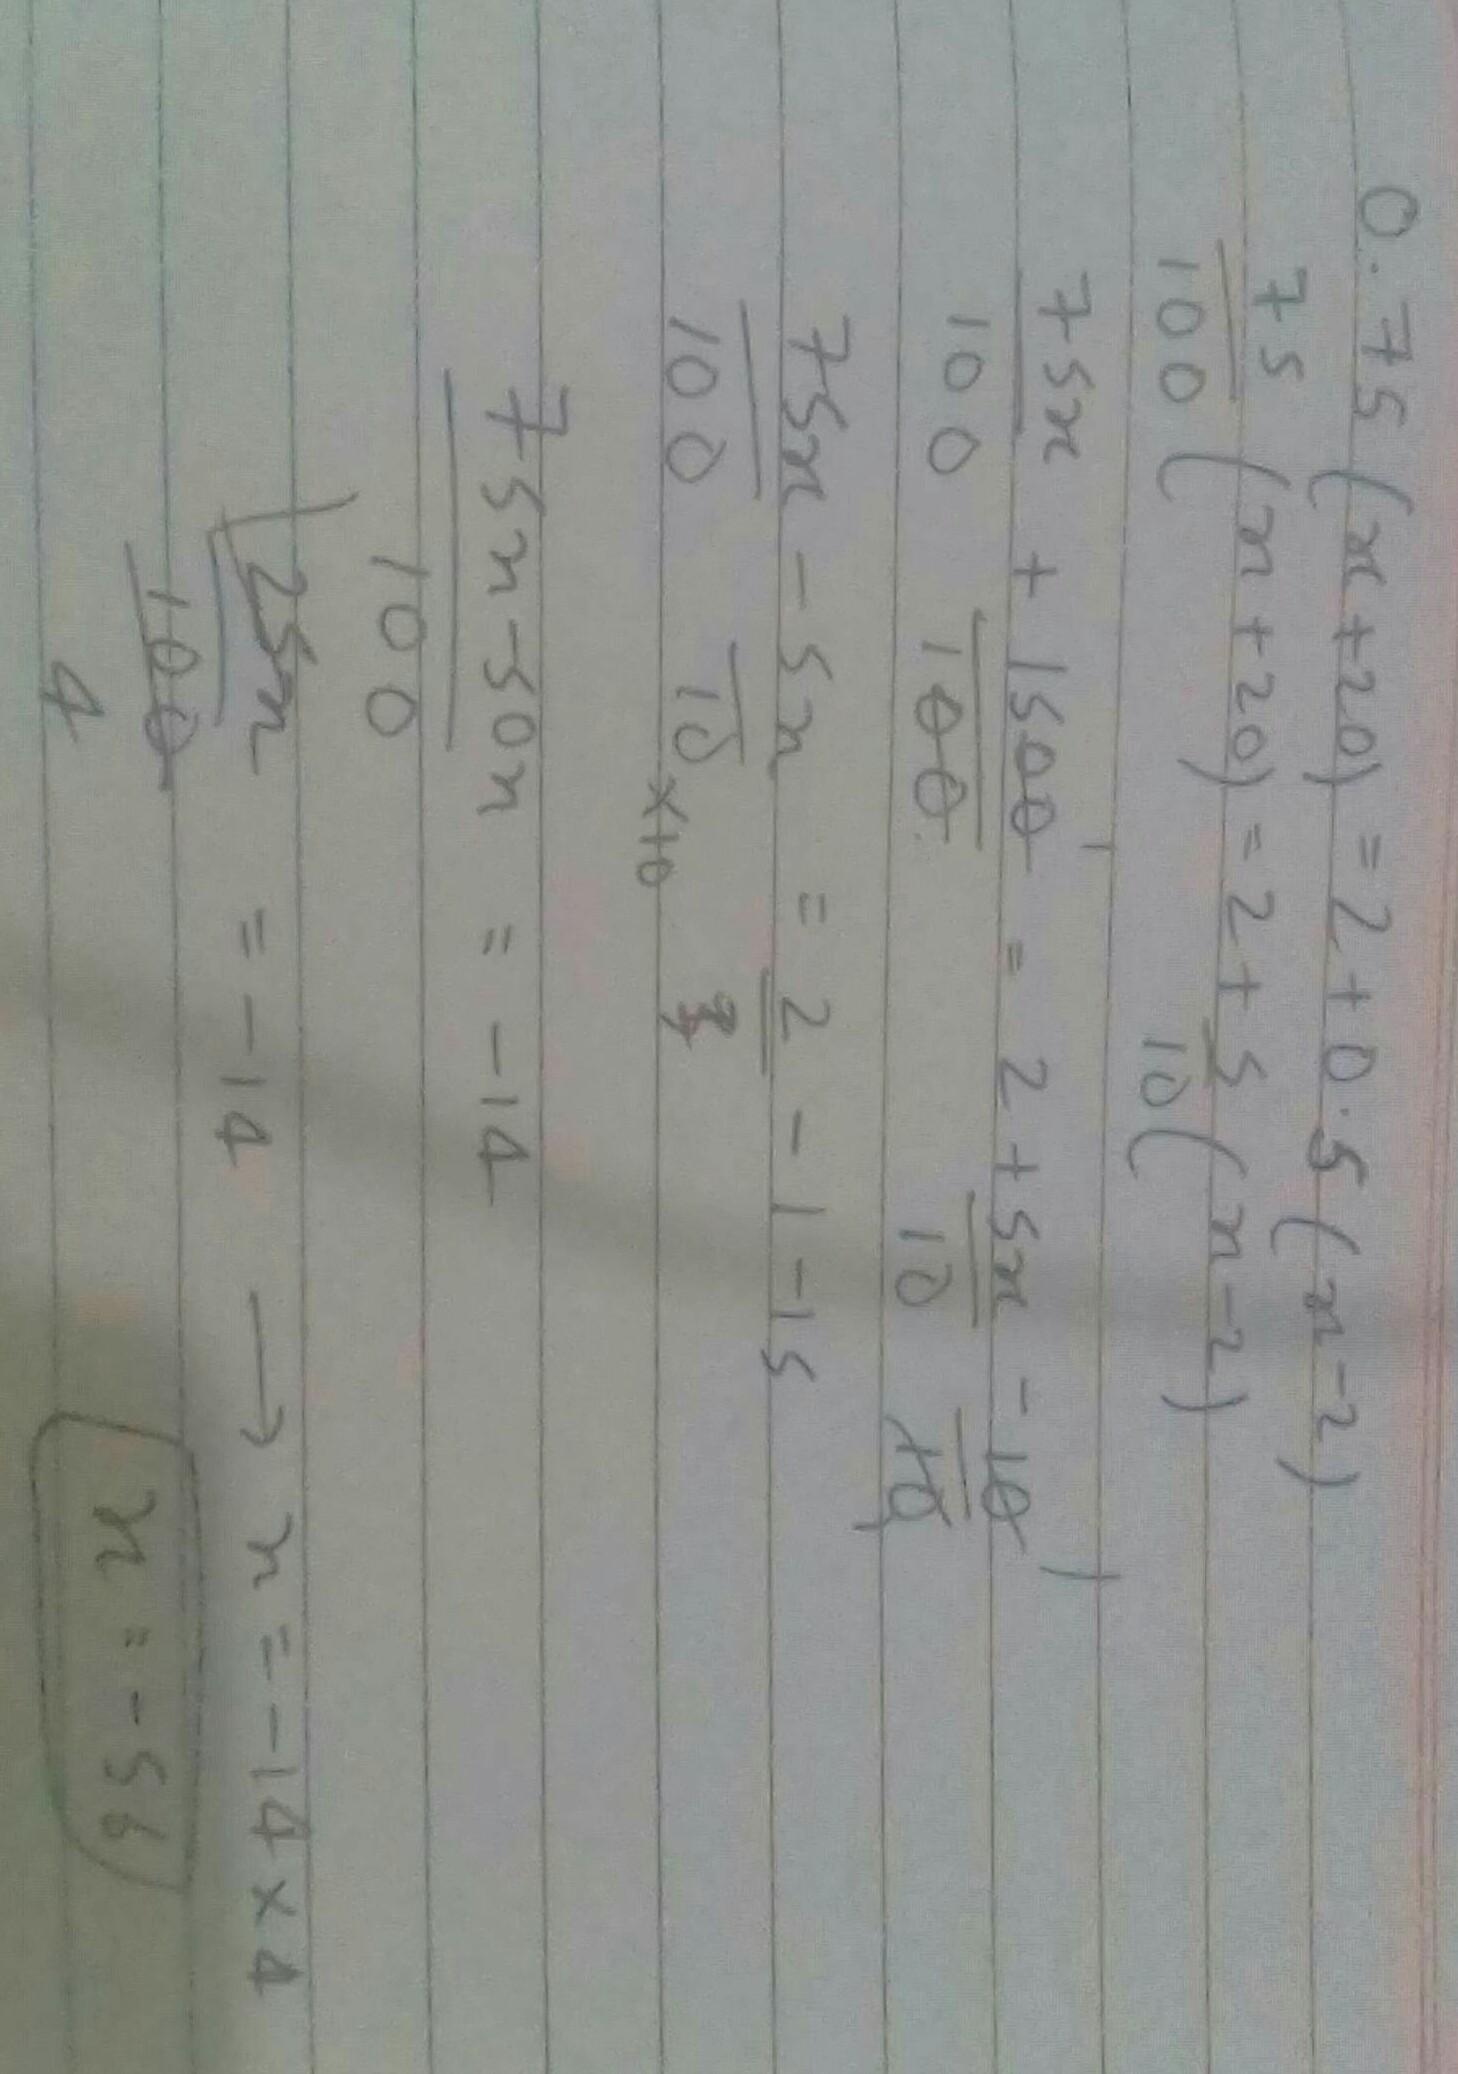 0.75(x+20) = 2+0.5(x-2)
75/100 (x+20) = 2+5/10 (x-2)
75x/100 + 1500/100 = 2+5x/10 - 10/10
75x/100 - 5x/10 ×10 = 2 - 1 - 15
75x-50x/100 = -14
25x/100 = -14 → x = -14×4
4
x = -56